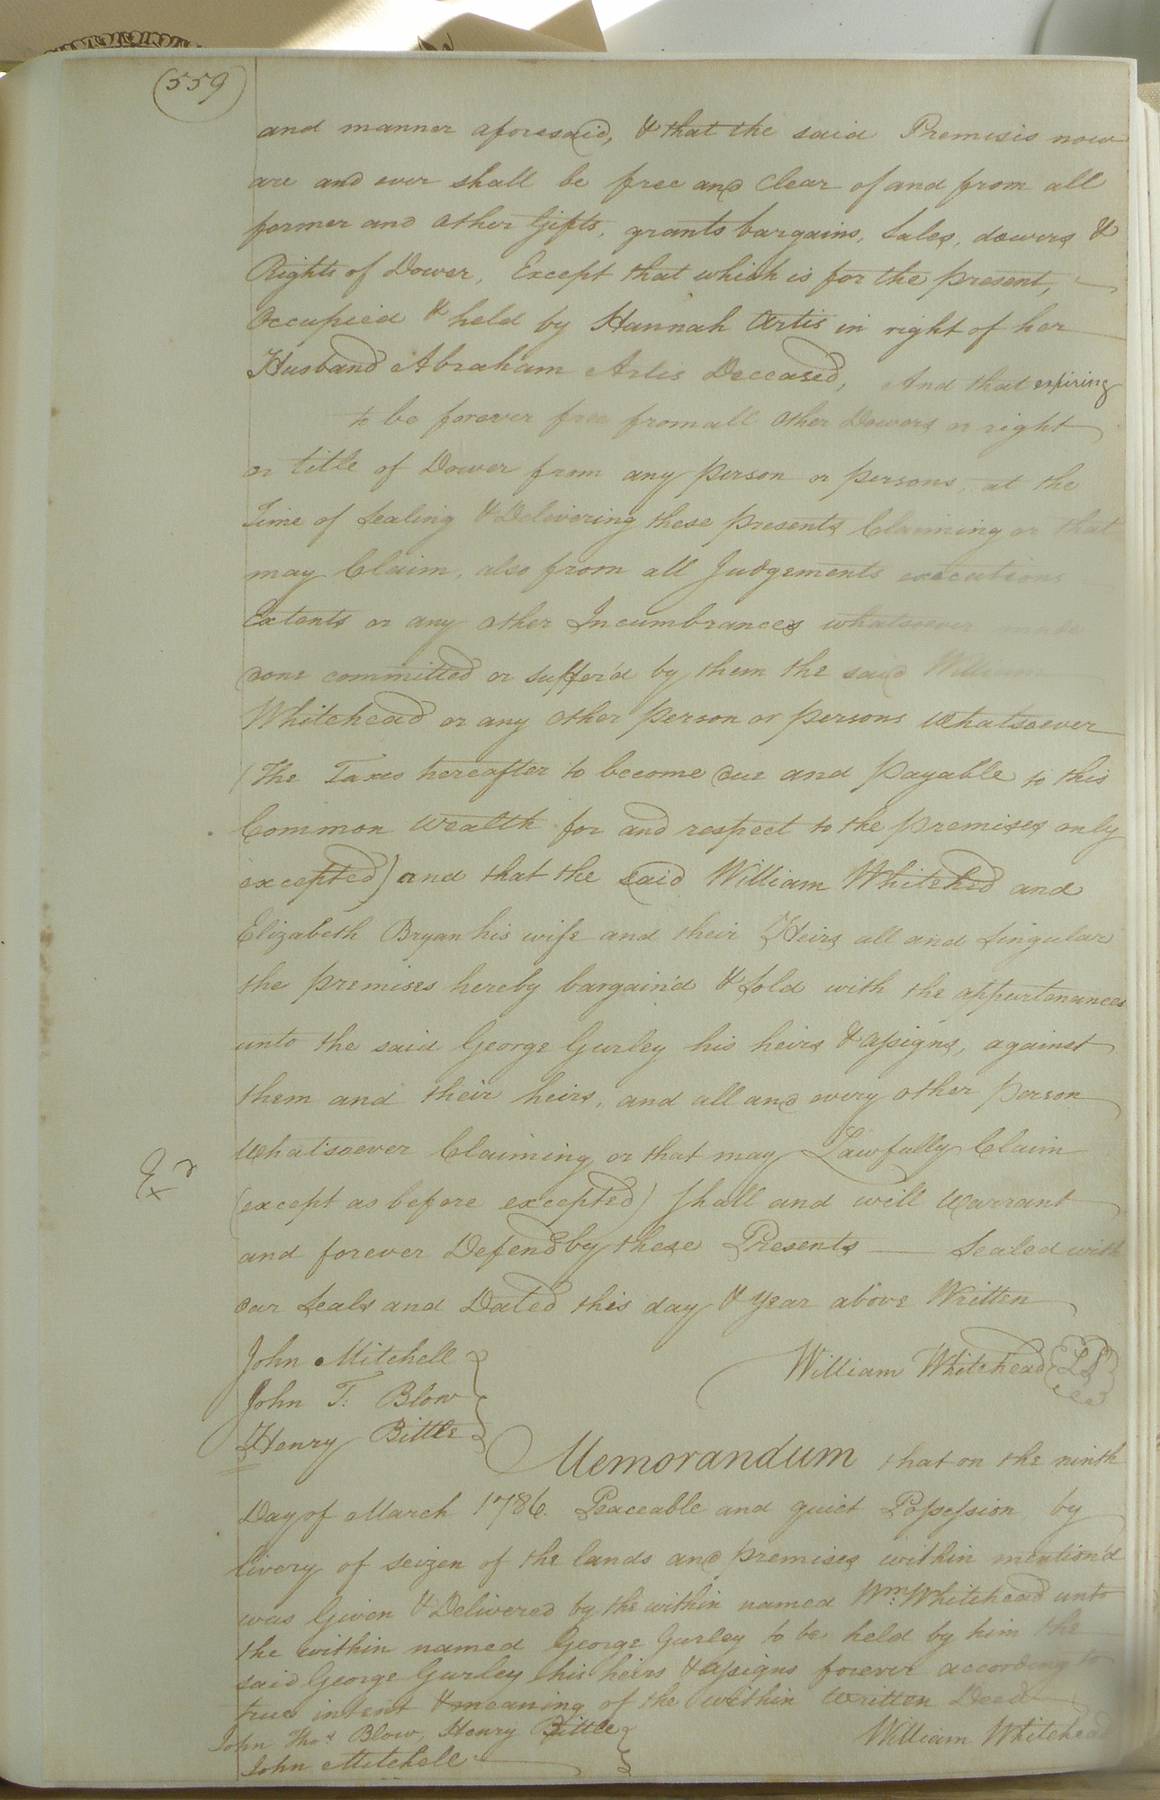 (559)
and manner aforesaid, & that the said Premisis now
are and ever shall be free and Clear of and from all
former and other Gifts, grants bargains, Sales, dowers &
Rights of Dower, Except that which is for the present,
Occupied & held by Hannah Artis in right of her
Husband Abraham Artis Deceased, And that expiring
to be forever free from all other Dowers or right
or title of Dower from any person or persons, at the
Time of Sealing & Delivering these presents Claiming or that
may Claim, also from all Judgements executions
Extents or any other Incumbrances whatsoever made
done committed or suffer'd by them the said William
Whitehead or any other person or persons whatsoever
(The Taxes hereafter to become due and payable to this
Common Wealth for and respect to the premises only
excepted) and that the said William Whitehed and
Elizabeth Bryan his wife and their Heirs all and Singular
the premises hereby bargain'd & Sold with the appurtenances
unto the said George Gurley his heirs & assigns, against
them and their heirs, and all and every other person
Whatsoever Claiming or that may Lawfully Claim
Exd
(except as before excepted) Shall and will Warrant
and forever Defend by these Presents — Sealed with
our Seals and Dated this day & Year above Written
John Mitchell
William Whitehead (LS)
John T. Blow
Henry Bittle
Memorandum that on the ninth
Day of March 1786. Peaceable and quiet Possession by
livery of seizen of the lands and premises within mention'd
was Given & Delivered by the within named Wm: Whitehead unto
the within named George Gurley to be held by him the
said George Gurley his heirs & assigns forever according to
true intent & meaning of the within Written Deed
John Thos Blow, Henry Bittle
William Whitehead
John Mitchell